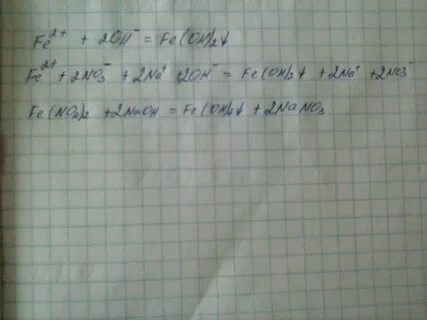 Fe²⁺ + 2OH⁻ = Fe(OH)₂↓
Fe²⁺ + 2NO₃⁻ + 2Na⁺ + 2OH⁻ = Fe(OH)₂↓ + 2Na⁺ + 2NO₃⁻
Fe(NO₃)₂ + 2NaOH = Fe(OH)₂↓ + 2NaNO₃